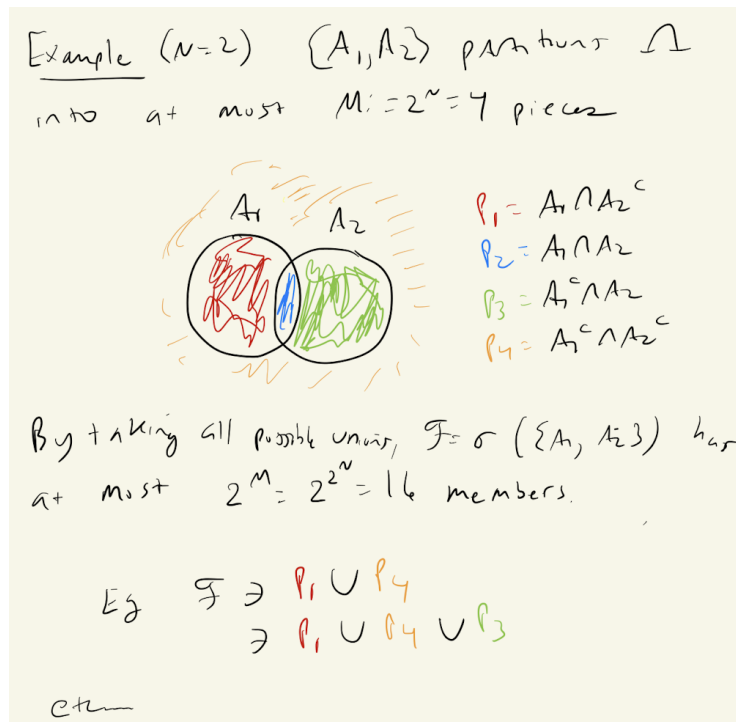 Example (N=2) {A₁, A₂} partitions Ω
into at most M:=2^N=4 pieces
A₁ A₂
P₁ = A₁ ∩ A₂^c
P₂ = A₁ ∩ A₂
P₃ = A₁^c ∩ A₂
P₄ = A₁^c ∩ A₂^c
By taking all possible unions, F = σ({A₁, A₂}) has
at most 2^M = 2^2^N = 16 members.
Eg F ∋ P₁ ∪ P₄
∋ P₁ ∪ P₄ ∪ P₃